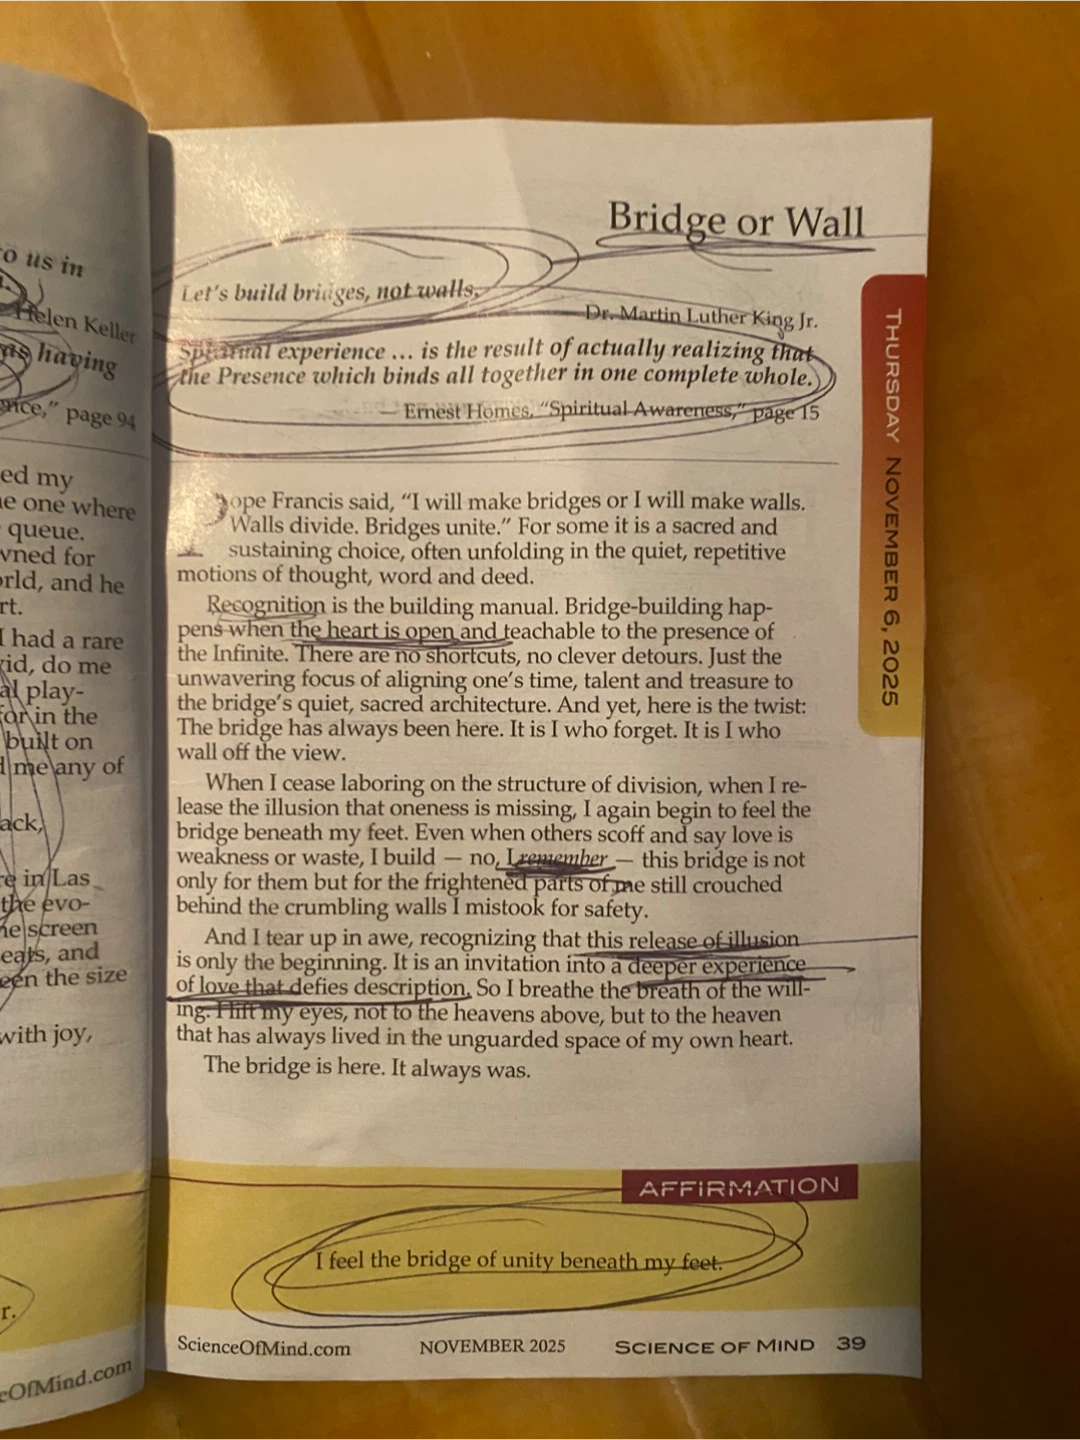 o us in
Helen Keller
as having
ence," page 94
ed my
e one where
queue.
wned for
orld, and he
rt.
I had a rare
kid, do me
al play-
for in the
built on
d me any of
ack,
re in Las
the evo-
he screen
eats, and
een the size
with joy,
r.
eOfMind.com
Bridge or Wall
Let's build bridges, not walls.
Dr. Martin Luther King Jr.
Spiritual experience ... is the result of actually realizing that
the Presence which binds all together in one complete whole.
— Ernest Homes, "Spiritual Awareness," page 15
THURSDAY NOVEMBER 6, 2025
Pope Francis said, "I will make bridges or I will make walls.
Walls divide. Bridges unite." For some it is a sacred and
sustaining choice, often unfolding in the quiet, repetitive
motions of thought, word and deed.
Recognition is the building manual. Bridge-building hap-
pens when the heart is open and teachable to the presence of
the Infinite. There are no shortcuts, no clever detours. Just the
unwavering focus of aligning one's time, talent and treasure to
the bridge's quiet, sacred architecture. And yet, here is the twist:
The bridge has always been here. It is I who forget. It is I who
wall off the view.
When I cease laboring on the structure of division, when I re-
lease the illusion that oneness is missing, I again begin to feel the
bridge beneath my feet. Even when others scoff and say love is
weakness or waste, I build — no, I remember — this bridge is not
only for them but for the frightened parts of me still crouched
behind the crumbling walls I mistook for safety.
And I tear up in awe, recognizing that this release of illusion
is only the beginning. It is an invitation into a deeper experience
of love that defies description. So I breathe the breath of the will-
ing. I lift my eyes, not to the heavens above, but to the heaven
that has always lived in the unguarded space of my own heart.
The bridge is here. It always was.
AFFIRMATION
I feel the bridge of unity beneath my feet.
ScienceOfMind.com NOVEMBER 2025 SCIENCE OF MIND 39